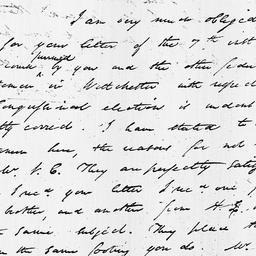 I am very much obliged
for your letter of the 7th inst
pursued
course by you and the other
in Westchester with respect
Congressional election is undoubt
tly correct. I have stated to
here, the reasons for not
They are perfectly satis
I recd your letter I recd one
brother, and another from H.
same subject. They place th
on the same footing you do.